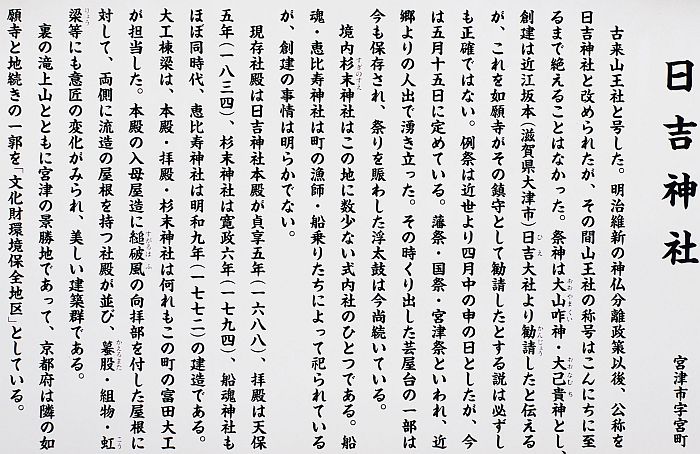 日吉神社
宮津市字宮町
古来山王社と号した。明治維新の神仏分離政策以後、公称を
日吉神社と改められたが、その間山王社の称号はこんにちに至
るまで絶えることはなかった。祭神は大山咋神・大己貴神とし、
創建は近江坂本(滋賀県大津市)日吉大社より勧請したと伝える
が、これを如願寺がその鎮守として勧請したとする説は必ずし
も正確ではない。例祭は近世より四月中の申の日としたが、今
は五月十五日に定めている。藩祭・国祭・宮津祭といわれ、近
郷よりの人出で湧き立った。その時くり出した芸屋台の一部は
今も保存され、祭りを賑わした浮太鼓は今尚続いている。
境内杉末神社はこの地に数少ない式内社のひとつである。船
魂・恵比寿神社は町の漁師・船乗りたちによって祀られている
が、創建の事情は明らかでない。
現存社殿は日吉神社本殿が貞享五年(一六八八)、拝殿は天保
五年(一八三四)、杉末神社は寛政六年(一七九四)、船魂神社も
ほぼ同時代、恵比寿神社は明和九年(一七七二)の建造である。
大工棟梁は、本殿・拝殿・杉末神社は何れもこの町の冨田大工
が担当した。本殿の入母屋造に縋破風の向拝部を付した屋根に
対して、両側に流造の屋根を持つ社殿が並び、蟇股・組物・虹
梁等にも意匠の変化がみられ、美しい建築群である。
裏の滝上山とともに宮津の景勝地であって、京都府は隣の如
願寺と地続きの一郭を「文化財環境保全地区」としている。